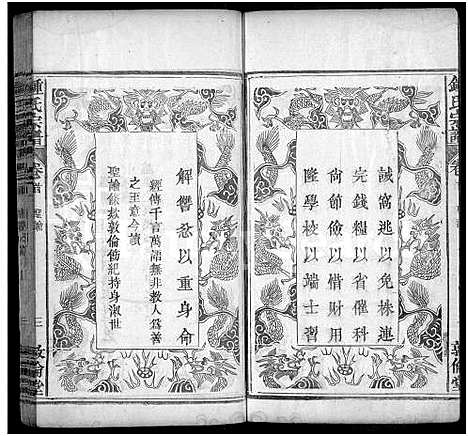 誠窩逃以免株連
完錢糧以省催科
尚節儉以惜財用
隆學校以端士習
鍾氏宗譜
卷
敦倫堂
解讐忿以重身命
經傳千言萬語無非教人為善
之至意今讀
聖諭條款敦倫飭紀持身淑世
鍾氏宗譜
卷首
聖諭
三
敦倫堂